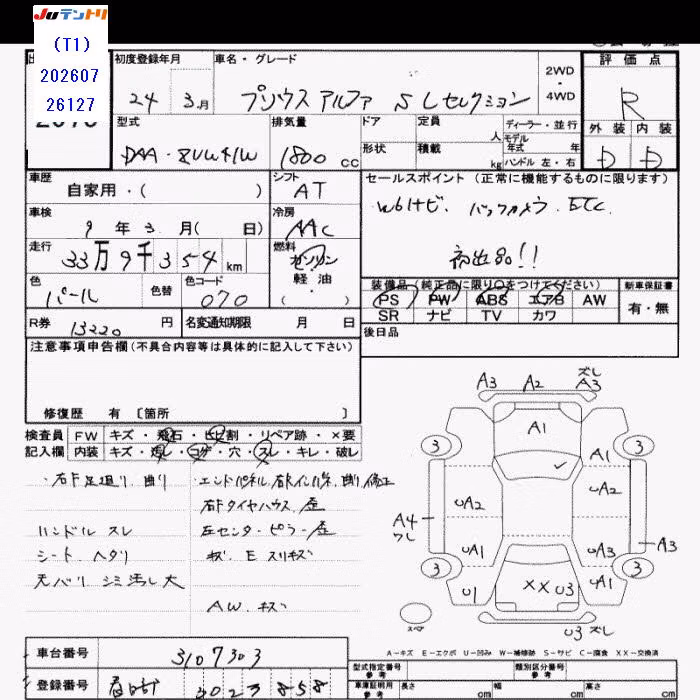 JUテントリ
(T1)
202607
26127
初度登録年月
24 3月
車名・グレード
プリウス アルファ S Lセレクション
2WD
・
4WD
評価点
R
外装 内装
D D
型式
DAA・ZVW41W
排気量
1800 cc
ドア
定員
人
形状
積載
kg
ディーラー・並行
モデル年式 年
ハンドル 左・右
車歴
自家用・( )
シフト
AT
セールスポイント (正常に機能するものに限ります)
W6ナビ. バックカメラ. ETC.
初出品!!
車検
9年3月( 日)
冷房
AAC
走行
33万9千354km
燃料
ガソリン
軽油
・( )
色
パール
色替
色コード
070
装備品(純正品に限り○をつけてください)
新車保証書
PS PW ABS エアB AW
有・無
SR ナビ TV カワ
R券
13220円
名変通知期限 月 日
後日品
注意事項申告欄(不具合内容等は具体的に記入して下さい)
修復歴 有 〔箇所 〕
検査員 FW キズ・飛石・ヒビ割・リペア跡・×要
記入欄 内装 キズ・汚レ・コゲ・穴・スレ・キレ・破レ
・右F足廻り. 曲り
・エンドパネル. 右Fインパネ. 曲り 修正
右Fタイヤハウス. 歪
ハンドル スレ
左センターピラー. 歪
シート ヘタリ
キズ E スリキズ
天バリ シミ 汚レ大
AW. キズ
A3 A2 ズレ A3
A1
3 3
A1
UA2 UA2
A4 ワレ
UA1 UA3 A3
3 3
U1 UA1
XX U3
スペア
U3 ズレ
A-キズ E-エクボ U-凹み W-補修跡 S-サビ C-腐食 XX-交換済
車台番号
3107303
型式指定番号 参考
類別区分番号 参考
登録番号
春日部 3023858
車庫証明用 参考 長さ cm 幅 cm 高さ cm